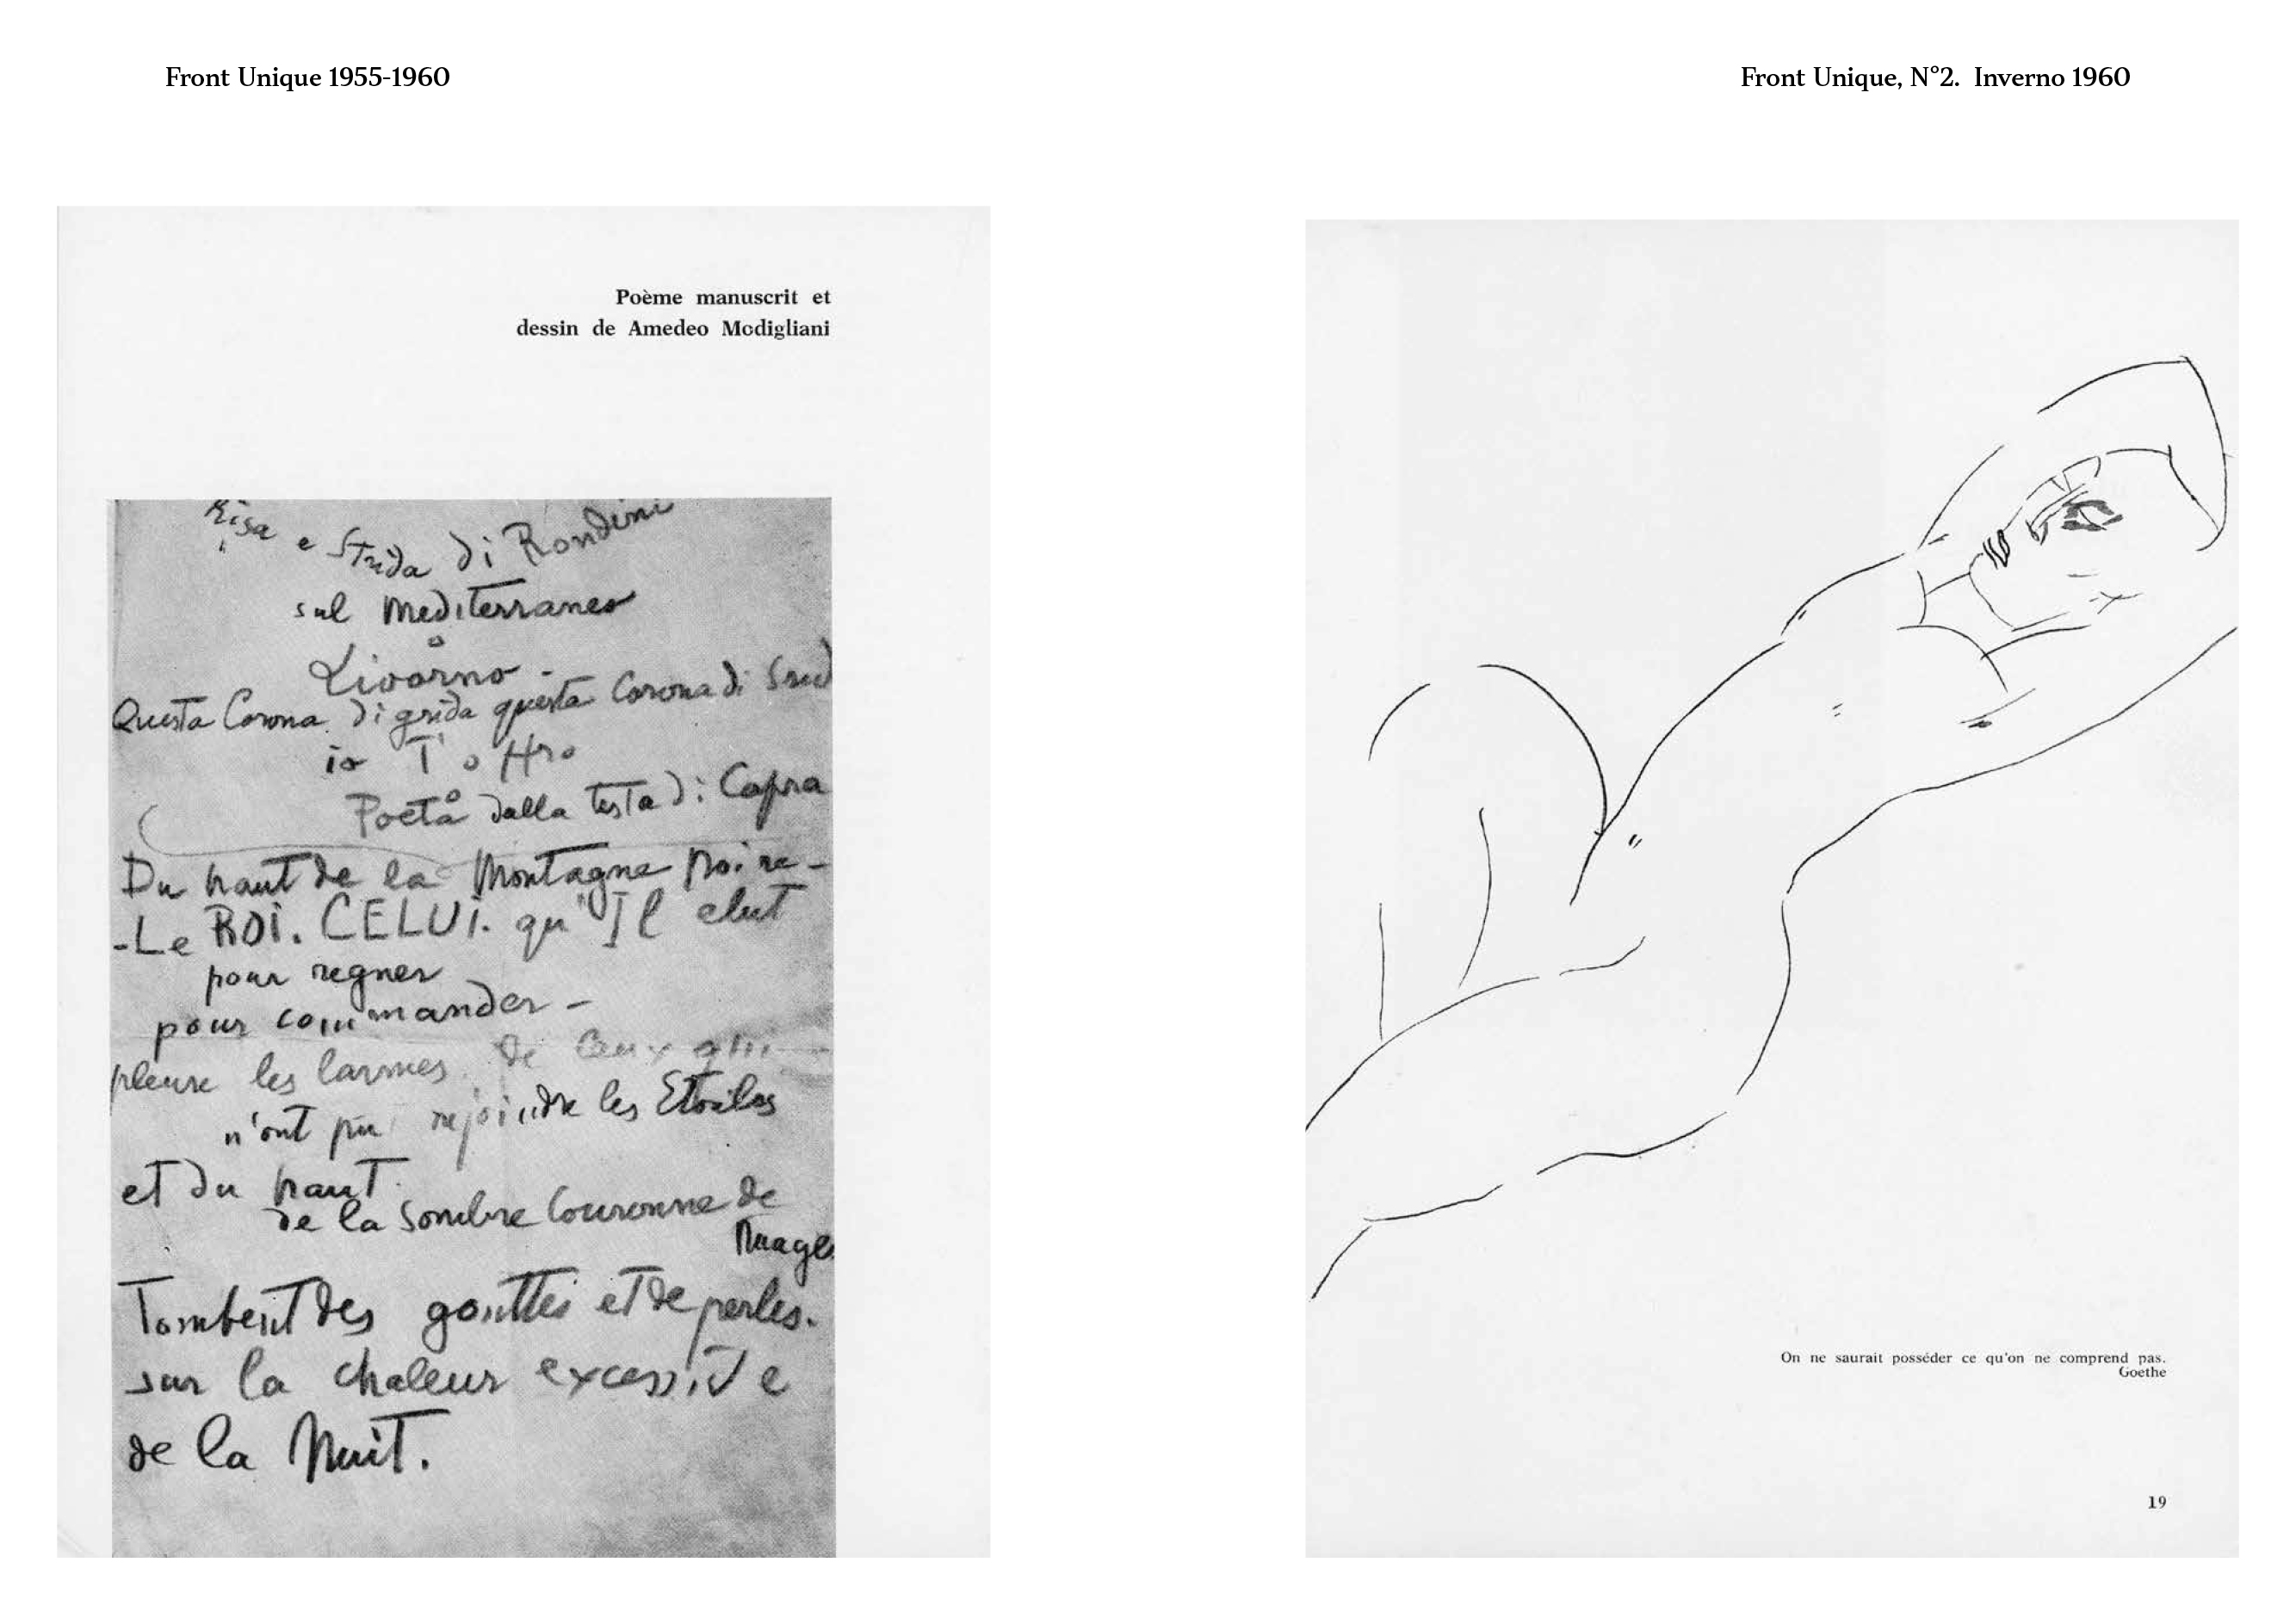 Front Unique 1955-1960
Front Unique, N°2. Inverno 1960
Poème manuscrit et
dessin de Amedeo Modigliani
Risa e Strida di Rondini
sul Mediterraneo
Livorno -
Questa Corona di grida questa Corona di
io T'offro
Poeta dalla testa di Capra
Du haut de la Montagne Noire -
- Le ROI. CELUI. qu'Il elut
pour regner
pour commander -
pleure les larmes de Ceux qui
n'ont pu rejoindre les Etoiles
et du haut
de la Sombre Couronne de
Nuages
Tombent des gouttes et de perles.
sur la chaleur excessive
de la Nuit.
On ne saurait posséder ce qu'on ne comprend pas.
Goethe
19